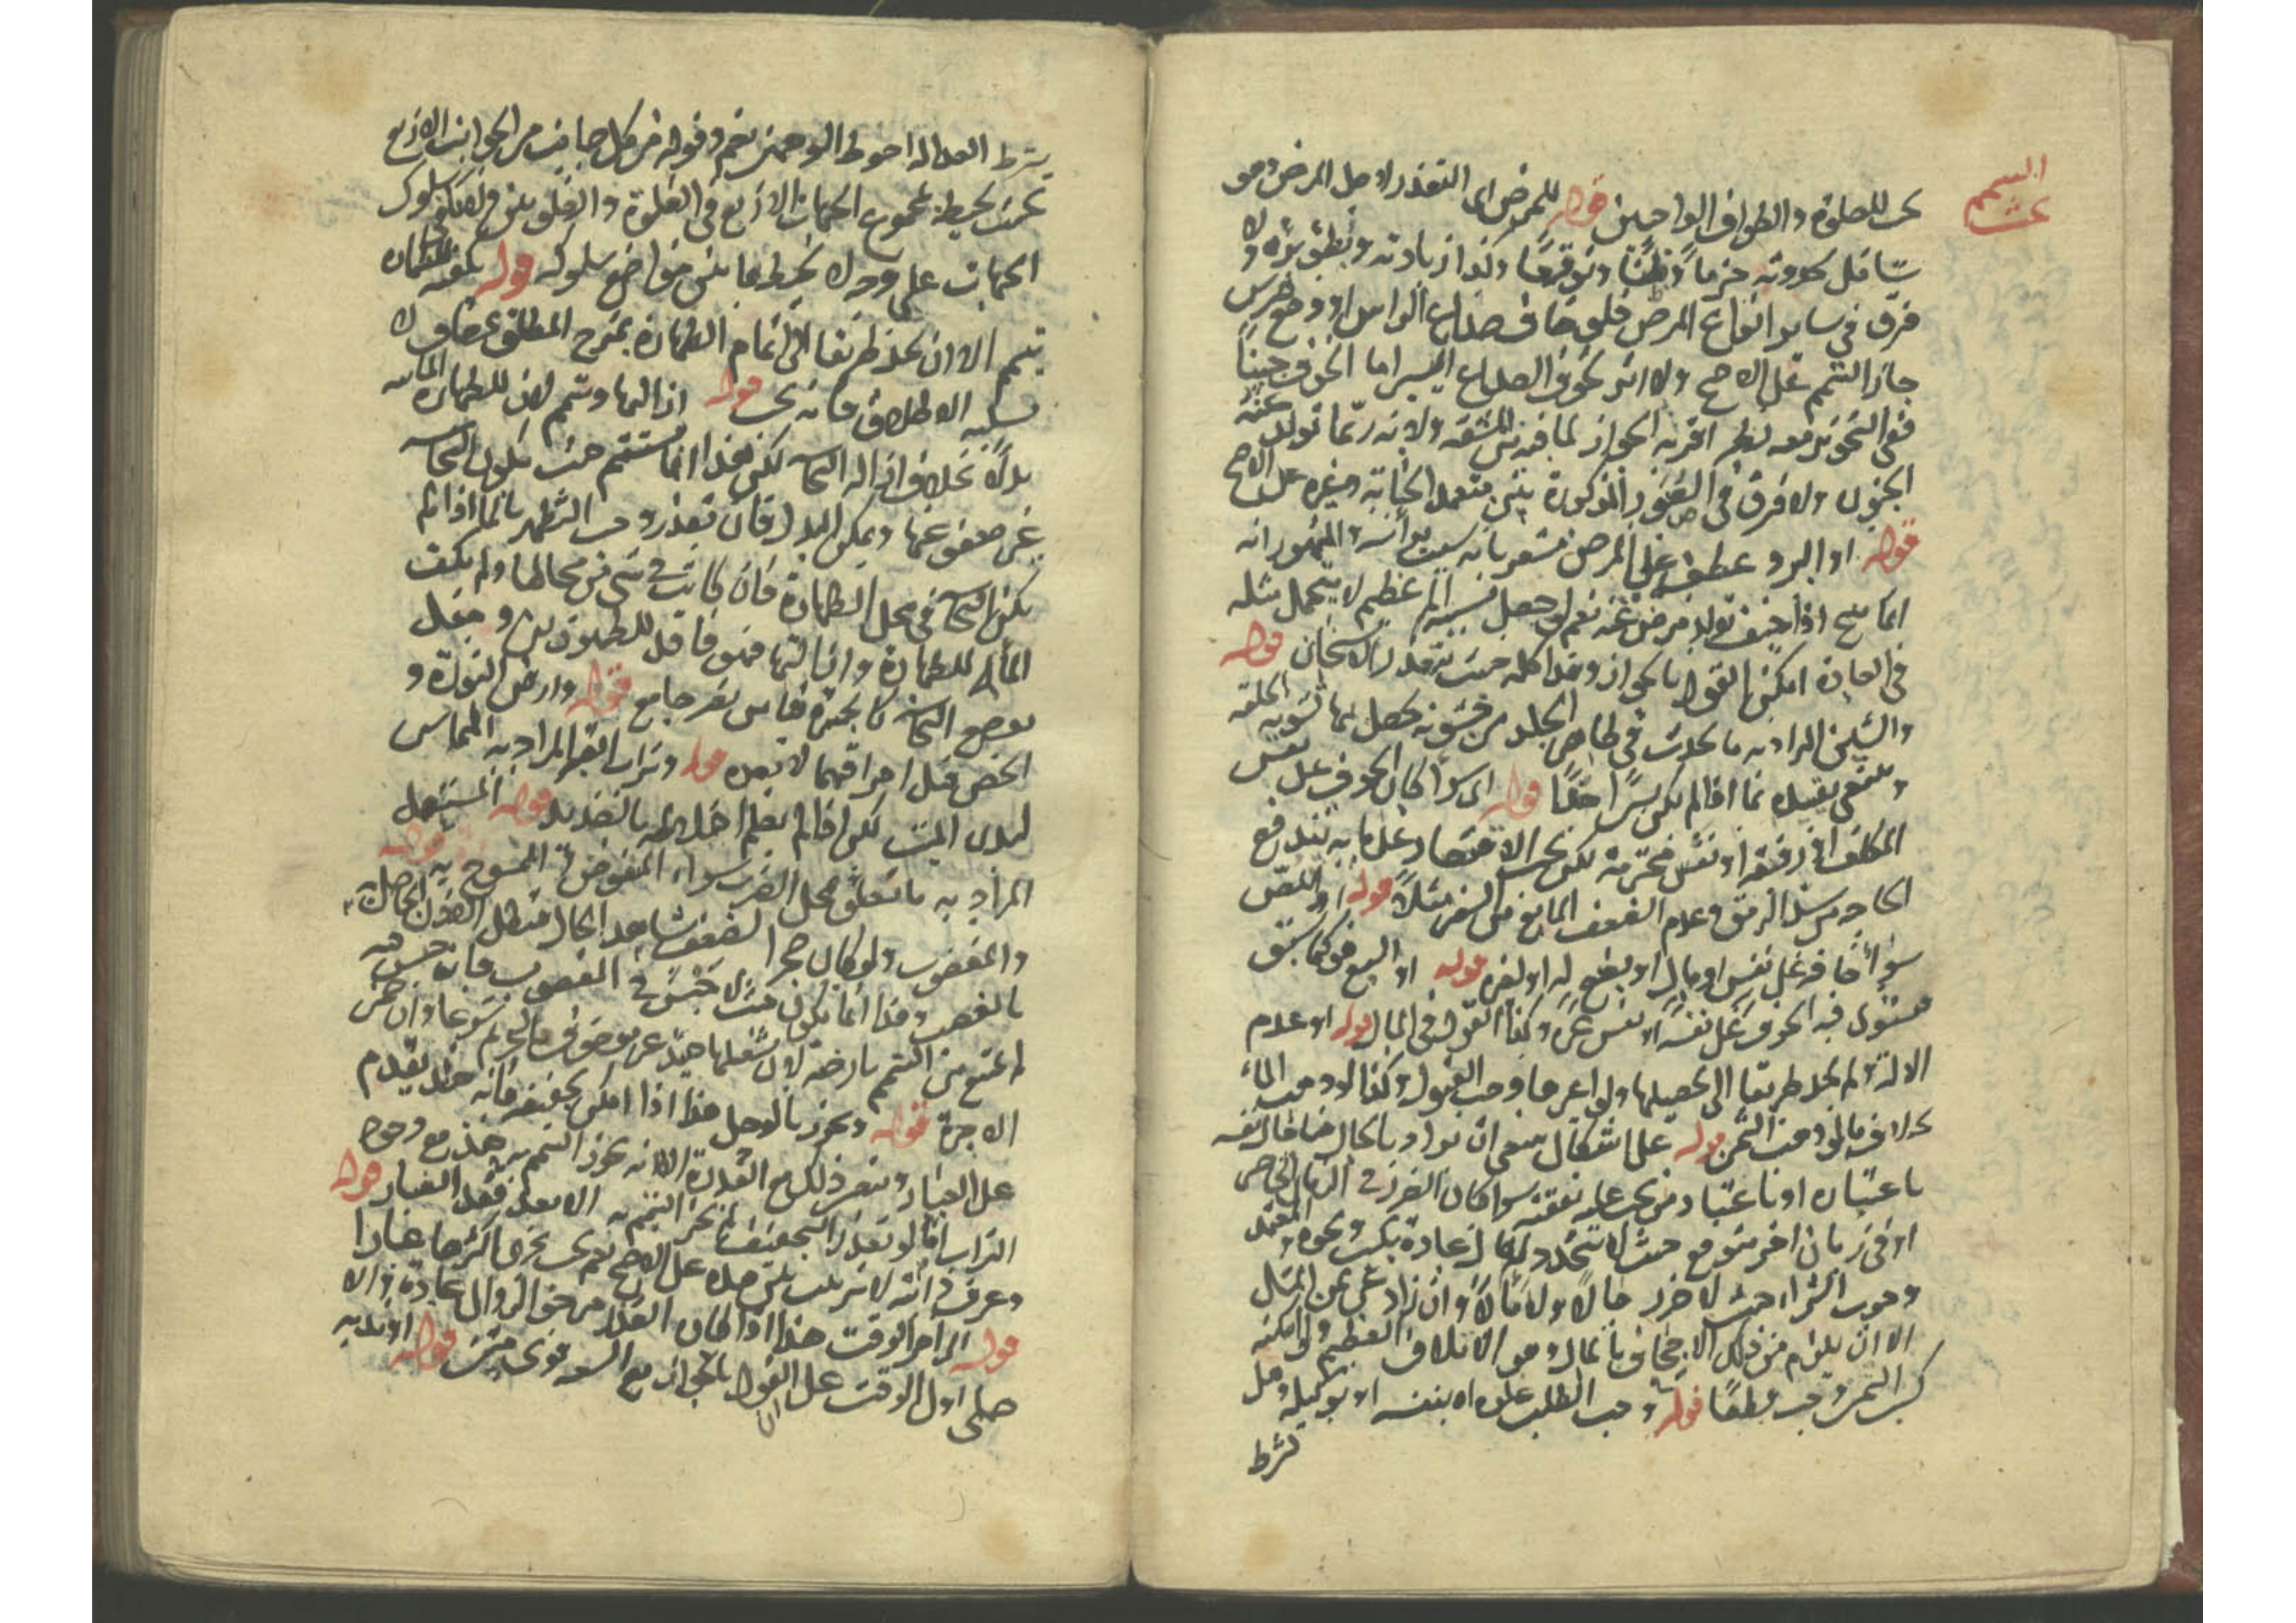 التيمم
يجب للصلوة والطواف الواجبين قوله للمرض اى التعذر لاجل المرض وهو
شامل لحدوثه جزما وظنا وتوقعا وكذا زيادته وبطؤ برئه ولا
فرق في ساير انواع المرض فلو خاف صداع الراس او وجع ضرس
جاز التيمم على الاصح ولا اثر لخوف الصداع اليسير اما الخوف جبنا
ففى التجويز معه نظر اقربه الجواز لما فيه من المشقه ولانه ربما تولد عنه
الجنون ولا فرق فى الصور المذكورة بين متعمد الجنابة وغيره على الاصح
قوله او البرد عطف على المرض مشعر بانه سبب براسه والمشهور انه
انما يبيح اذا خيف تولد مرض عنه نعم لو حصل بسببه الم عظيم لا يتحمل مثله
فى العادة امكن القول بالجواز وهذا كله حيث يتعذر الاسخان قوله
والشين المراد به ما يحدث فى ظاهر الجلد من خشونه يحصل بها تشويه الخلقه
وينبغى تقييده بما اذا لم يكن يسيرا جدا قوله اى سوا كان الخوف على نفس
المكلف او رفيقه او نفس محترمة لكن يجب الاقتصار على ما به تندفع
الحاجه من سد الرمق وعدم الضعف المانع من السفر مثلا قوله او اللص
سواء خافه على نفس او مال او بضع له او لغيره قوله او السبع هو كما سبق
فيستوى فيه الخوف على نفسه او نفس غيره وكذا القول فى المال قوله او عدم
الالة ولم يجد طريقا الى تحصيلها ولو اعيرها وجب القبول وكذا لو وهب الماء
بخلاف ما لو وهب الثمن قوله على اشكال ينبغى ان يراد بالحال هنا حال نفسه
باعتباره او باعتبار من يجب عليه نفقته سوا كان الضرر فى الزمان الحاضر
او فى زمان اخر متوقع حيث لا يتجدد له مال عادة بكسب ونحوه والمعتمد
وجوب الشراء حيث لا ضرر حالا ولا مالا وان زاد عن ثمن المثل
الا ان يلزم من ذلك الاجحاف بالمال وهو الاتلاف العظيم ولو امكنه
كسب الثمن وجب مطلقا قوله وجب الطلب علوه اه بنفسه او بوكيله وهل
يشترط
يشترط العدالة احوط الوجهين نعم وقوله من كل جانب من الجوانب الاربع
بحيث يحيط بمجموع الجهات الاربع فى الغلوة والغلوتين ولا يكفى سلوك
الجهات على وجه لا يحيط بما بين مواضع سلوكه قوله يكفيه للطهارة
تيمم الا ان يجد طريقا الى اتمام الطهارة بمزج المطلق بمضاف لا
يسلبه الاطلاق فانه يجب قوله ازالها وتيمم لان للطهارة المائيه
بدلا بخلاف ازاله النجاسه لكن هذا انما يستقيم حيث يكون النجاسه
غير معفو عنها ويمكن البدل فان تعذر وجب التطهير بالماء اذا لم
يكن النجاسه فى محل الطهارة فان كانت فى شى من محالها ولم يكف
الماء للطهارة وازالتها فهو فاقد للطهورين ولو جعل
موضع النجاسه كالجبيرة قياس بغير جامع قوله وارض النورة و
الجص قبل احراقهما لا بعده قوله وتراب القبر المراد به المماس
لبدن الميت لكن اذا لم يعلم اختلاطه بالصديد قوله المستعمل
المراد به ما تعلق بمحل الضرب سواء المنفوض والممسوح به قوله
والمغصوب ولو كان حجرا لضعف شاهد الحال فتبطل الاذن الحاصل
بالغصب وهذا انما يكون حيث لا حبس فى المغصوب فانه حبس فيه
لم يمنع من التيمم بارضه لان شغلها حينئذ غير موصوف بالتحريم شرعا وان ضمن
الاجرة قوله ويجوز بالوحل هذا اذا امكن تجفيفه فانه حينئذ يقدم
على الغبار ويتعين ذلك مع القدرة الا انه يجوز التيمم به حينئذ مع وجود
التراب اما لو تعذر التجفيف لم يجز التيمم به الا بعد فقد الغبار قوله
وعرف دابته لا ترتيب بين هذه على الاصح نعم يجب تحرى اكثرها غبارا
قوله الى اخر الوقت هذا اذا كان العذر مرجو الزوال عادة والا
صلى اول الوقت على القول بالجواز مع السعه قوى متين قوله الابديه